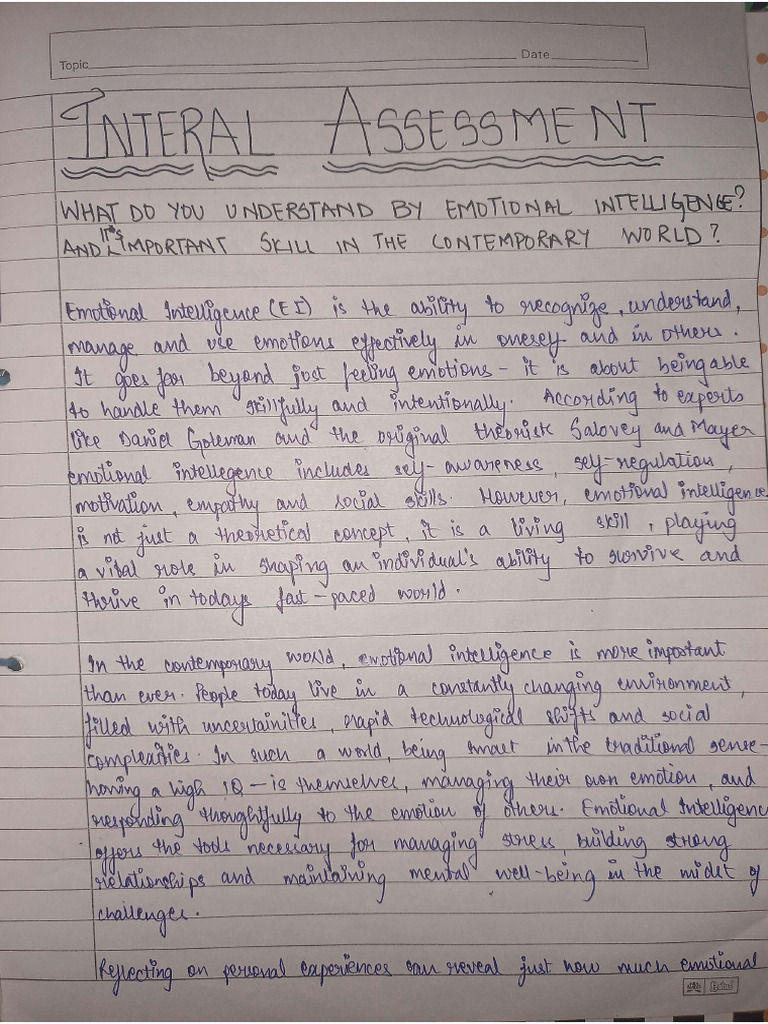 Topic
Date
INTERAL ASSESSMENT
WHAT DO YOU UNDERSTAND BY EMOTIONAL INTELLIGENCE?
AND IT'S IMPORTANT SKILL IN THE CONTEMPORARY WORLD?
Emotional Intelligence (EI) is the ability to recognize, understand,
manage and use emotions effectively in onesef and in others.
It goes far beyond just feeling emotions - it is about being able
to handle them skillfully and intentionally. According to experts
like Daniel Goleman and the original theorists Salovey and Mayer
emotional intellegence includes self-awareness, self-regulation,
motivation, empathy and social skills. However, emotional intelligence
is not just a theoretical concept, it is a living skill, playing
a vital role in shaping an individual's ability to survive and
thrive in todays fast-paced world.
In the contemporary world, emotional intelligence is more important
than ever. People today live in a constantly changing environment,
filled with uncertainities, rapid technological shifts and social
complexities. In such a world, being smart in the traditional sense-
having a high IQ - is themselves, managing their own emotion, and
responding thoughtfully to the emotion of others. Emotional Intelligence
offers the tools necessary for managing stress, building strong
relationships and maintaining mental well-being in the midst of
challenges.
Reflecting on personal experiences can reveal just how much emotional